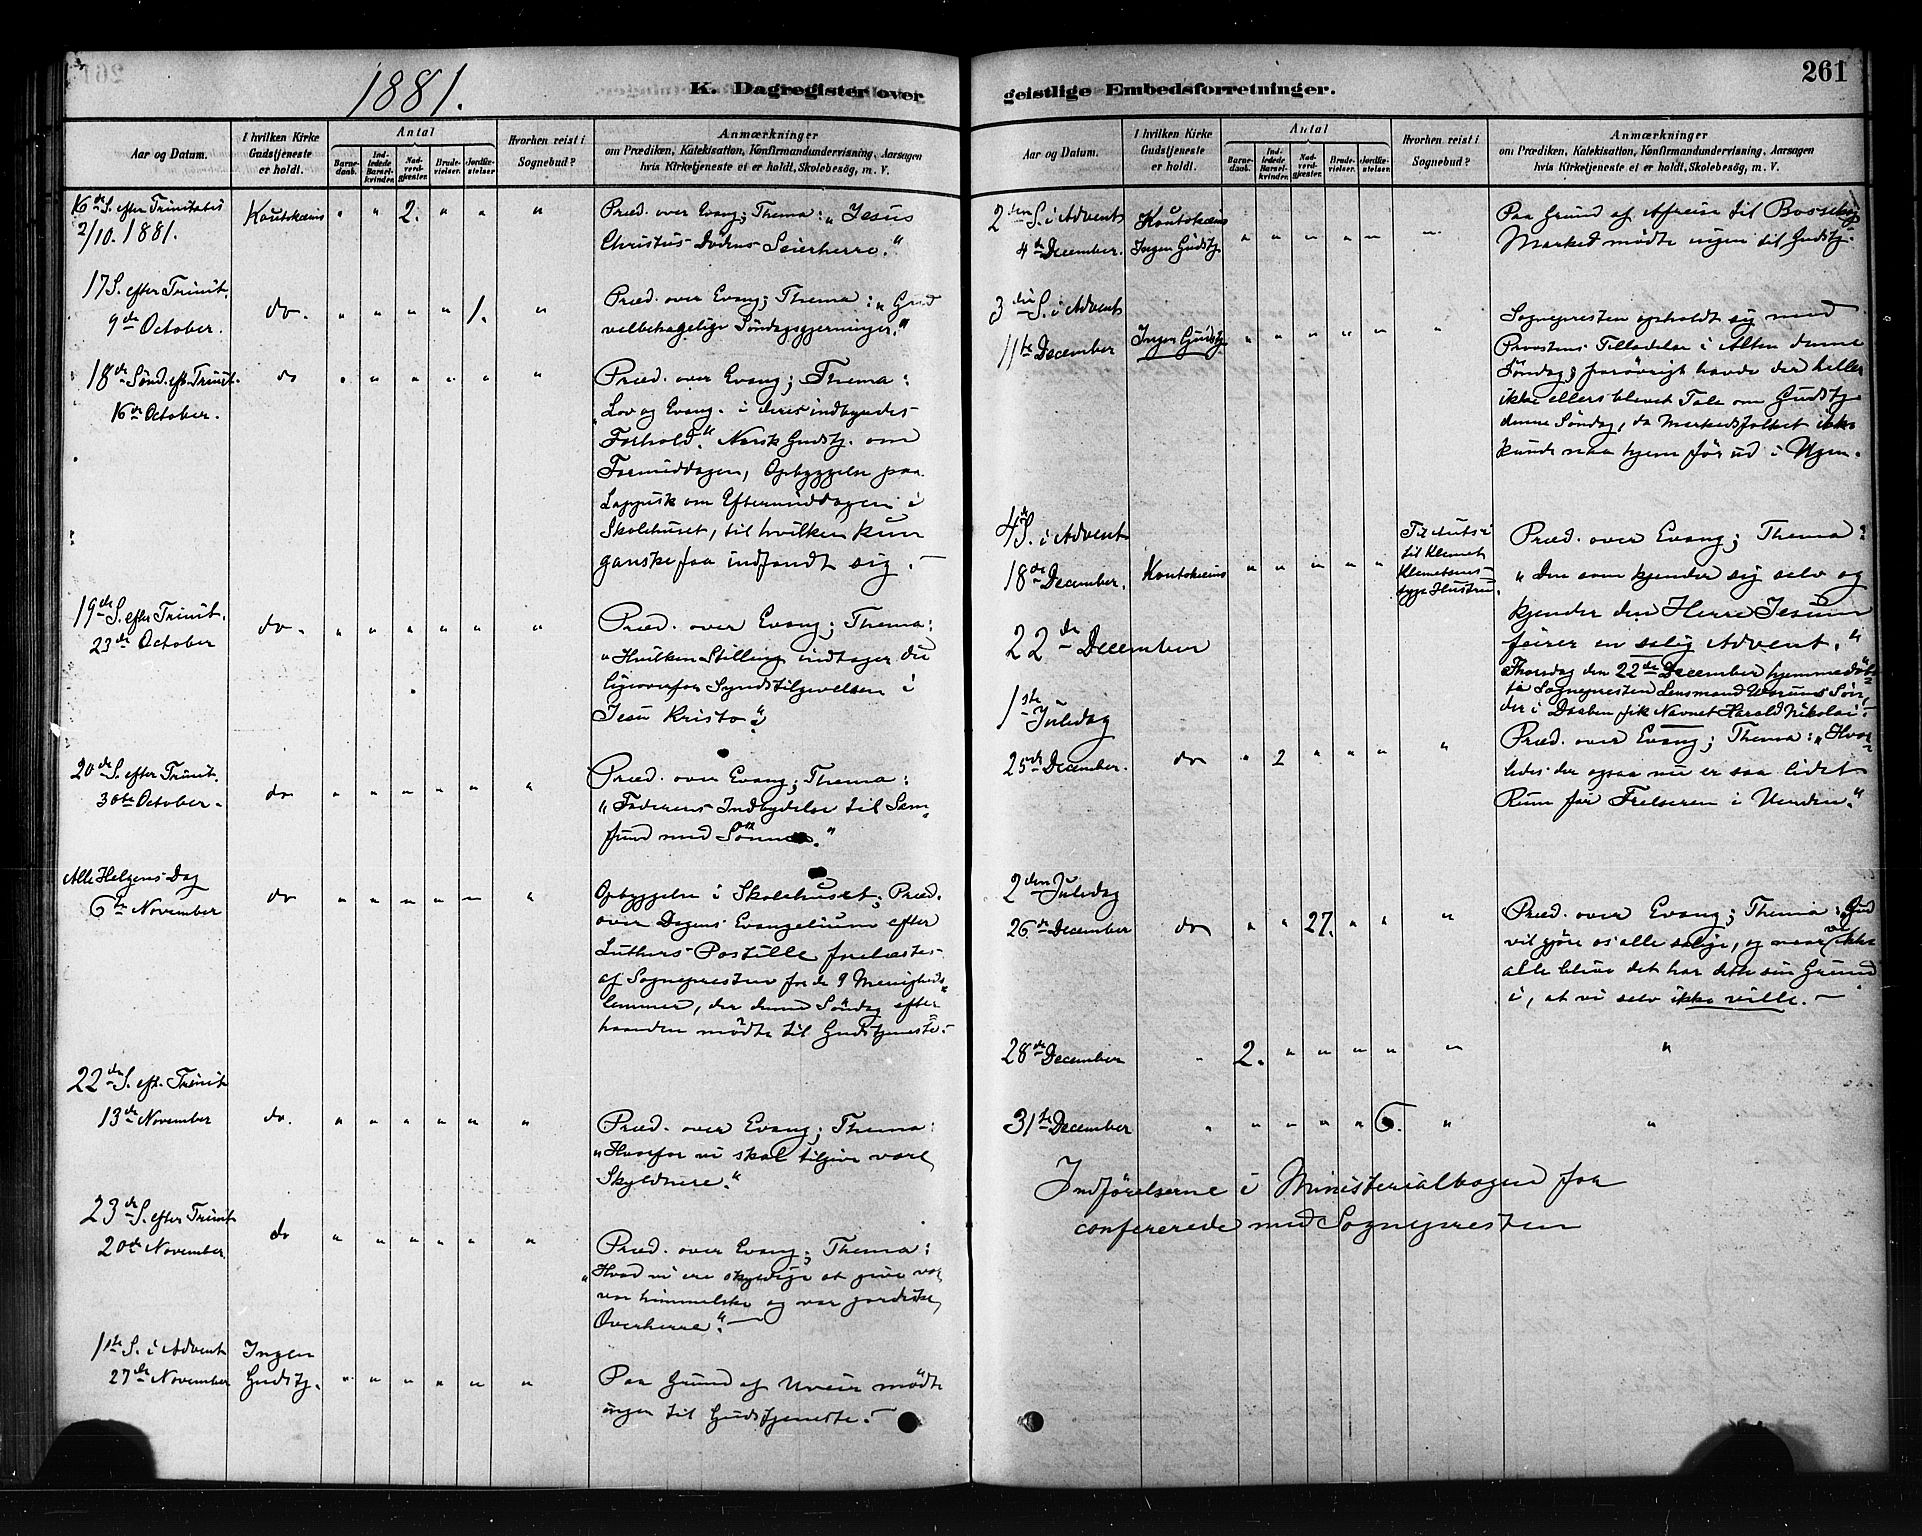 1881.
K. Dagregister over
Aar og Datum.
I hvilken Kirke
Gudstjeneste
er holdt.
Antal
Barne-
daab.
Ind-
ledede
Barsel-
kvinder.
Nad-
verd-
gjester.
Brude-
vielser.
Jordfæ-
stelser
Hvorhen reist i
Sognebud?
Anmærkninger
om Prædiken, Katekisation, Konfirmandundervisning, Aarsagen
hvis Kirketjeneste ei er holdt, Skolebesög, m. V.
16de S. efter Trinitatis
2/10. 1881.
Koutokeino " " 2. " " "
Præd. over Evang; Thema: "Jesus
Christus Dödens Seierherre."
17 S. efter Trinit.
9de October.
do. " " " " 1. "
Præd. over Evang; Thema: "Gud
velbehagelige Söndagsgjerninger."
18de Sönd. eft. Trinit.
16de October.
do " " " " " "
Præd. over Evang; Thema:
Lov og Evang. i deres indbyrdes
Forhold." Norsk Gudstj. om
Formiddagen, Opbyggelse paa
Lappisk om Eftermiddagen i
Skolehuset, til hvilken kun
ganske faa indfandt sig. -
19de S. efter Trinit.
23de October
do. " " " " " "
Præd. over Evang; Thema:
"Hvilken Stilling indtager du
ligeoverfor Syndstilgivelsen i
Jesu Kristo"?
20de S. efter Trinit.
30te October.
do " " " " " "
Præd. over Evang; Thema:
"Faderens Indbydelse til Sam-
fund med Sönnen."
Alle Helgens Dag
6te November
do " " " " " "
Opbyggelse i Skolehuset; Præd.
over Dagens Evangelium efter
Luthers Postille forelæstes
af Sognepresten for de 9 Menigheds-
lemmer, der denne Söndag efter
haanden mödte til Gudstjeneste.-
22de S. eft. Trinit
13de November
do. " " " " " "
Præd. over Evang; Thema:
"Hvorfor vi skal tilgive vore
Skyldnere."
23de S. efter Trinit
20de November
do " " " " " "
Præd. over Evang; Thema:
"Hvad vi ere skyldige at give
vor himmelske og vor jordiske
Overherre". -
1ste S. i Advent
27de November
Ingen
Gudstj. " " " " " "
Paa Grund af Uveir mödte
ingen til Gudstjeneste. -
geistlige Embedsforretninger.
261
Aar og Datum.
I hvilken Kirke
Gudstjeneste
er holdt.
Antal
Barne-
daab.
Ind-
ledede
Barsel-
kvinder.
Nad-
verd-
gjester.
Brude-
vielser.
Jordfæ-
stelser
Hvorhen reist i
Sognebud?
Anmærkninger
om Prædiken, Katekisation, Konfirmandundervisning, Aarsagen
hvis Kirketjeneste et er holdt, Skolebesög, m. V.
2den S. i Advent
4de December.
Koutokeino
Ingen Gudstj. " " " " " "
Paa Grund af Afreise til Bossekop
Marked mödte ingen til Gudstj.
3die S. i Advent
11te December
Ingen Gudstj. " " " " " "
Sognepresten opholdt sig med
Provstens Tilladelse i Alten denne
Söndag; forövrigt havde der heller
ikke ellers blevet Tale om Gudstj.
denne Söndag, da Markedsfolket ikke
kunde naa hjem för ud i Ugen.
4de S. i Advent
18de December.
Koutokeino " " " " "
Til Autsi
til Klemet
Klemetsens
syge Hustru.
Præd. over Evang; Thema:
"Den som kjender sig selv og
kjender den Herre Jesum
feirer en salig Advent."
22de December
Thorsdag den 22de December hjemmedöb-
te Sognepresten Lensmand Sön,
der i Daaben fik Navnet Harald Nikolai.
1ste Juledag
25de December.
do " 2 " " " "
Præd. over Evang; Thema: "Hvor-
ledes der ogsaa nu er saa lidet
Rum for Frelseren i Verden."
2den Juledag
26de December
do " " 27. " " "
Præd. over Evang; Thema: "Gud
vil gjöre os alle salige, og naar vi ikke
alle blive det har dette sin Grund
i, at vi selv ikke ville. -"
28de December
" 2. " " " " " "
31te December
" " " " " 6. " "
Indförelserne i Ministerialbogen for
confererede med Sognepresten